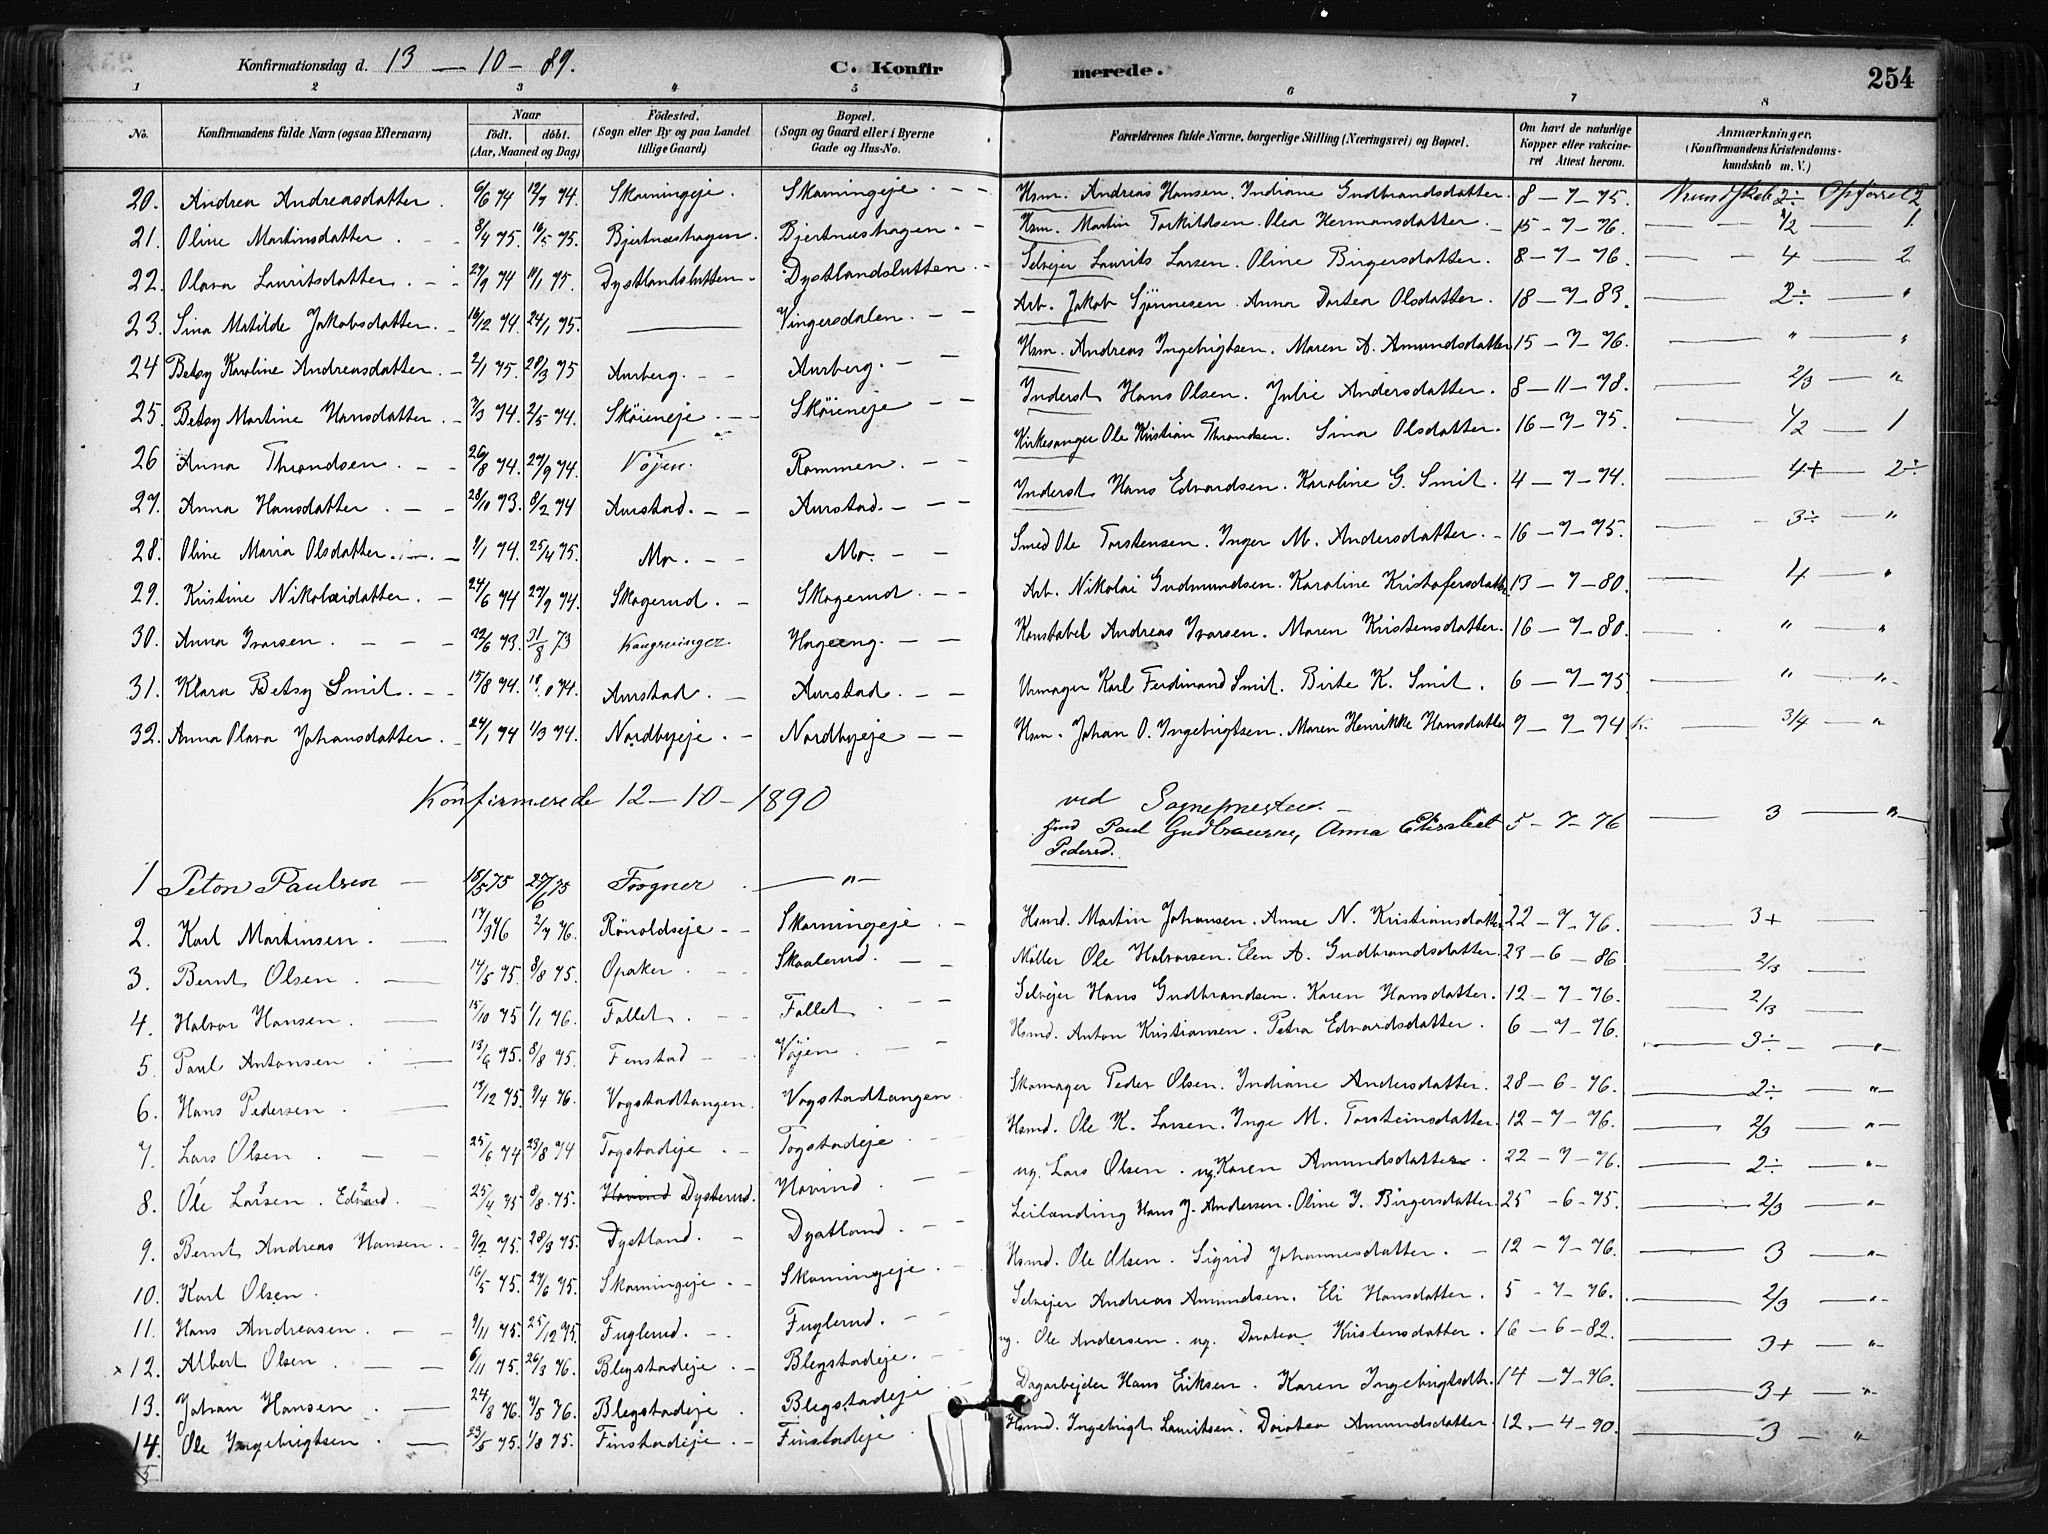 Konfirmationsdag d. 13 — 10 - 89. C. Konfirmerede. 254
1 2 3 4 5 6 7 8
No. Konfirmandens fulde Navn (ogsaa Efternavn) Naar født. døbt. (Aar, Maaned og Dag) Fødested. (Sogn eller By og paa Landet tillige Gaard) Bopæl. (Sogn og Gaard eller i Byerne Gade og Hus-No. Forældrenes fulde Navne, borgerlige Stilling (Næringsvei) og Bopæl. Om havt de naturlige Kopper eller vakcineret Attest herom. Anmærkninger. (Konfirmandens Kristendomskundskab m. V.)
20. Andrea Andreasdatter. 6/6 74 12/7 74. Skarningeje. Skarningeje. — — Hsm. Andreas Hansen. Indiane Gudbrandsdatter. 8 — 7 — 75. 2÷ Opførsel 2
21. Oline Martinsdatter. 8/4 75. 16/5 75. Bjertnæshagen. Bjertnæshagen. — Hsm. Martin Torkildsen. Olea Hermansdatter. 15 — 7 — 76. 1/2 — 1.
22. Olava Lauritsdatter. 29/9 74 10/1 75. Dystlandslutten. Dystlandslutten. — Selvejer Laurits Larsen. Oline Birgersdatter. 8 — 7 — 76. 4 — 2
23. Sina Matilde Jakobsdatter. 16/12 74. 24/1 75. — Vingersdalen. — — Arb. Jakob Sjønnesen. Anna Dortea Olsdatter. 18 — 7 — 83. 2÷ — "
24 Betsy Karoline Andreasdatter. 2/1 75. 28/3 75 Aurberg. — — Aurberg. — — Hsm. Andreas Ingebrigtsen. Maren A. Amundsdatter 15 — 7 — 76. " — "
25. Betsy Martine Hansdatter. 7/3 74. 2/5 74. Skøieneje. — — Skøieneje — — Inderst Hans Olsen. Julie Andersdatter. 8 — 11 — 78. 2/3 — "
26 Anna Throndsen. — — 26/8 74. 27/9 74. Vøjen. Rammen. — — Kirkesanger Ole Kristian Throndsen. Sina Olsdatter. 16 — 7 — 75. 1/2 — 1
27. Anna Hansdatter. — — 28/10 73. 8/2 74 Aurstad. — — Aurstad. — — Inderst Hans Edvardsen. Karoline G. Smit. 4 — 7 — 74. 4+ — 2÷
28. Oline Maria Olsdatter. — 1/1 74. 25/4 75. Mo. — — Mo. — — Smed Ole Torstensen. Inger M. Andersdatter. 16 — 7 — 75. 3÷ "
29. Kristine Nikolaidatter. — 24/6 74 27/9 74. Skogerud. — Skogerud. — — Arb. Nikolai Gudmundsen. Karoline Kristofersdatter 13 — 7 — 80. 4 "
30. Anna Ivarsen. — — — 22/6 73. 31/8 73 Kongsvinger. Hageeng. — — Konstabel Andreas Ivarsen. Maren Kristensdatter. 16 — 7 — 80. " "
31. Klara Betsy Smit. — — 15/8 74. 74. Aurstad. — Aurstad. — — Urmager Karl Ferdinand Smit. Birte K. Smit. 6 — 7 — 75 " "
32. Anna Olava Johansdatter. 24/1 74 1/3 74. Nordbyeje. — Nordbyeje — — Hsm. Johan O. Ingebrigtsen. Maren Henrikke Hansdatter 7 — 7 — 74 3/4 — "
Konfirmerede 12 — 10 — 1890 ved Sognepresten.
1 Peton Paulsen — 15/5 75 27/6 75 Fogner. — " — Paul Gudbrandsen, Anna Elisabet Pedersd. 5 — 7 — 76 3 — "
2. Karl Martinsen. — 17/3 76 2/7 76. Rønoldseje — — Skarningeje. — Hsmd. Martin Johansen. Anne N. Kristiansdatter 22 — 7 — 76. 3+ —
3. Bernt Olsen. — 14/5 75. 8/8 75. Opaker. — — Skaalerud. — — Møller Ole Halvorsen. Elen A. Gudbrandsdatter. 23 — 6 — 86 2/3 —
4. Halvor Hansen. — 15/10 75 1/1 76. Fallet. — — Fallet. — — Selvejer Hans Gudbrandsen. Karen Hansdatter. 12 — 7 — 76. 2/3 —
5. Paul Antonsen — 13/6 75. 8/8 75. Finstad — — Vøjen. — — Hsmd. Anton Kristiansen. Petra Edvardsdatter. 6 — 7 — 76. 3÷ — "
6. Hans Pedersen. — 19/12 75. 9/4 76. Vogstadtangen. Vogstadtangen. Skomager Peder Olsen. Indiane Andersdatter. 28 — 6 — 76. 2÷ — "
7. Lars Olsen. — — 25/6 74 23/8 74 Togstadeje. — Togstadeje. Hsmd. Ole K. Larsen. Inge M. Torsteinsdatter. 12 — 7 — 76. 2/3 — "
8. Ole Larsen. Edvard. 25/4 75 8/8 75. Hovind Dysterud. Hovind. — ug. Lars Olsen. ug. Karen Amundsdatter. 22 — 7 — 76. 2÷ — "
9. Bernt Andreas Hansen. 9/2 75. 28/3 75. Dystland. — Dystland. — — Leilending Hans J. Andersen. Oline J. Birgersdatter. 25 — 6 — 75. 2/3 — "
10. Karl Olsen. 16/5 75. 27/6 75. Skarningeje. — Skarningeje. — Hsmd. Ole Olsen. Sigrid Johannesdatter. — 12 — 7 — 76. 3 — "
11. Hans Andreasen. — — 9/11 75. 25/12 75. Fuglerud. — Fuglerud. — Selvejer Andreas Amundsen. Eli Hansdatter. 5 — 7 — 76. 2/3 — "
x 12. Albert Olsen. — — 6/11 75. 26/3 76. Blegstadeje. — Blegstadeje. — ug. Ole Andersen. ug. Dorotea Kristensdatter. 16 — 6 — 82. 3+ — "
13. Johan Hansen. — 24/8 76. 7/5 76. Blegstadeje. Blegstadeje. — Dagarbejder Hans Eriksen. Karen Ingebrigtsdtr. 14 — 7 — 76. 3+ — "
14. Ole Ingebrigtsen. — 23/5 75. 1/8 75. Finstadeje. — Finstadeje. Hsmd. Ingebrigt Lauritsen. Dorotea Amundsdatter. 12. — 4 — 90. 3 — "
15